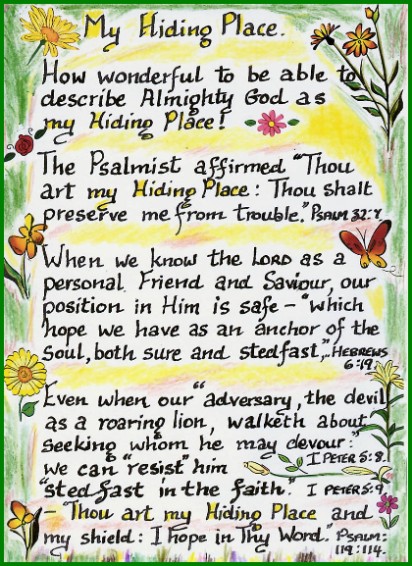 My Hiding Place.
How wonderful to be able to
describe Almighty God as
my Hiding Place!
The Psalmist affirmed "Thou
art my Hiding Place: Thou shalt
preserve me from trouble." PSALM 32:7
When we know the LORD as a
personal Friend and Saviour, our
position in Him is safe – "which
hope we have as an anchor of the
Soul, both sure and stedfast,". HEBREWS
6:19.
Even when our "adversary, the devil
as a roaring lion, walketh about
seeking whom he may devour":
I PETER 5:8.
we can "resist" him
"stedfast in the faith". I PETER 5:9
– "Thou art my Hiding Place and
my shield: I hope in Thy Word." PSALM:
119:114.